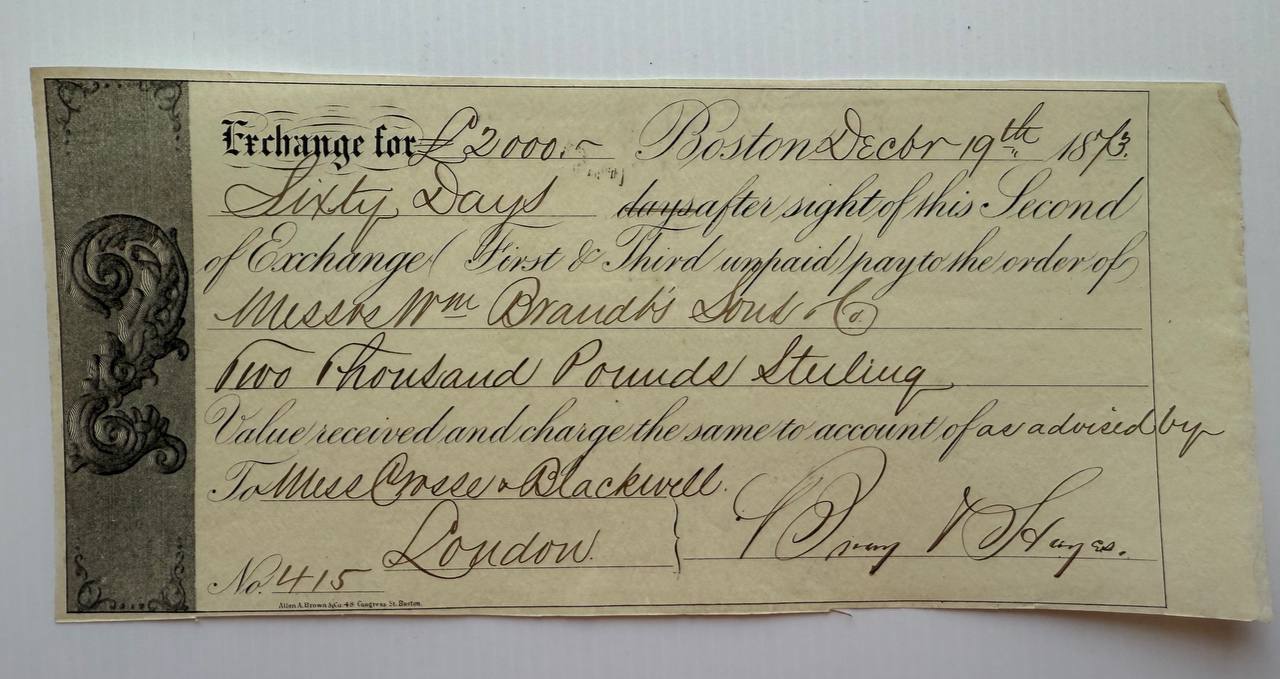 Exchange for £2000.- Boston Decbr 19th 1873.
Sixty Days days after sight of this Second
of Exchange (First & Third unpaid) pay to the order of
Messrs Wm Brandt's Sons & Co
Two Thousand Pounds Sterling
Value received and charge the same to account of as advised by
To Mess Crosse & Blackwell.
London.
& Hayes.
No. 415
Allen A. Brown & Co. 48 Congress St. Boston.